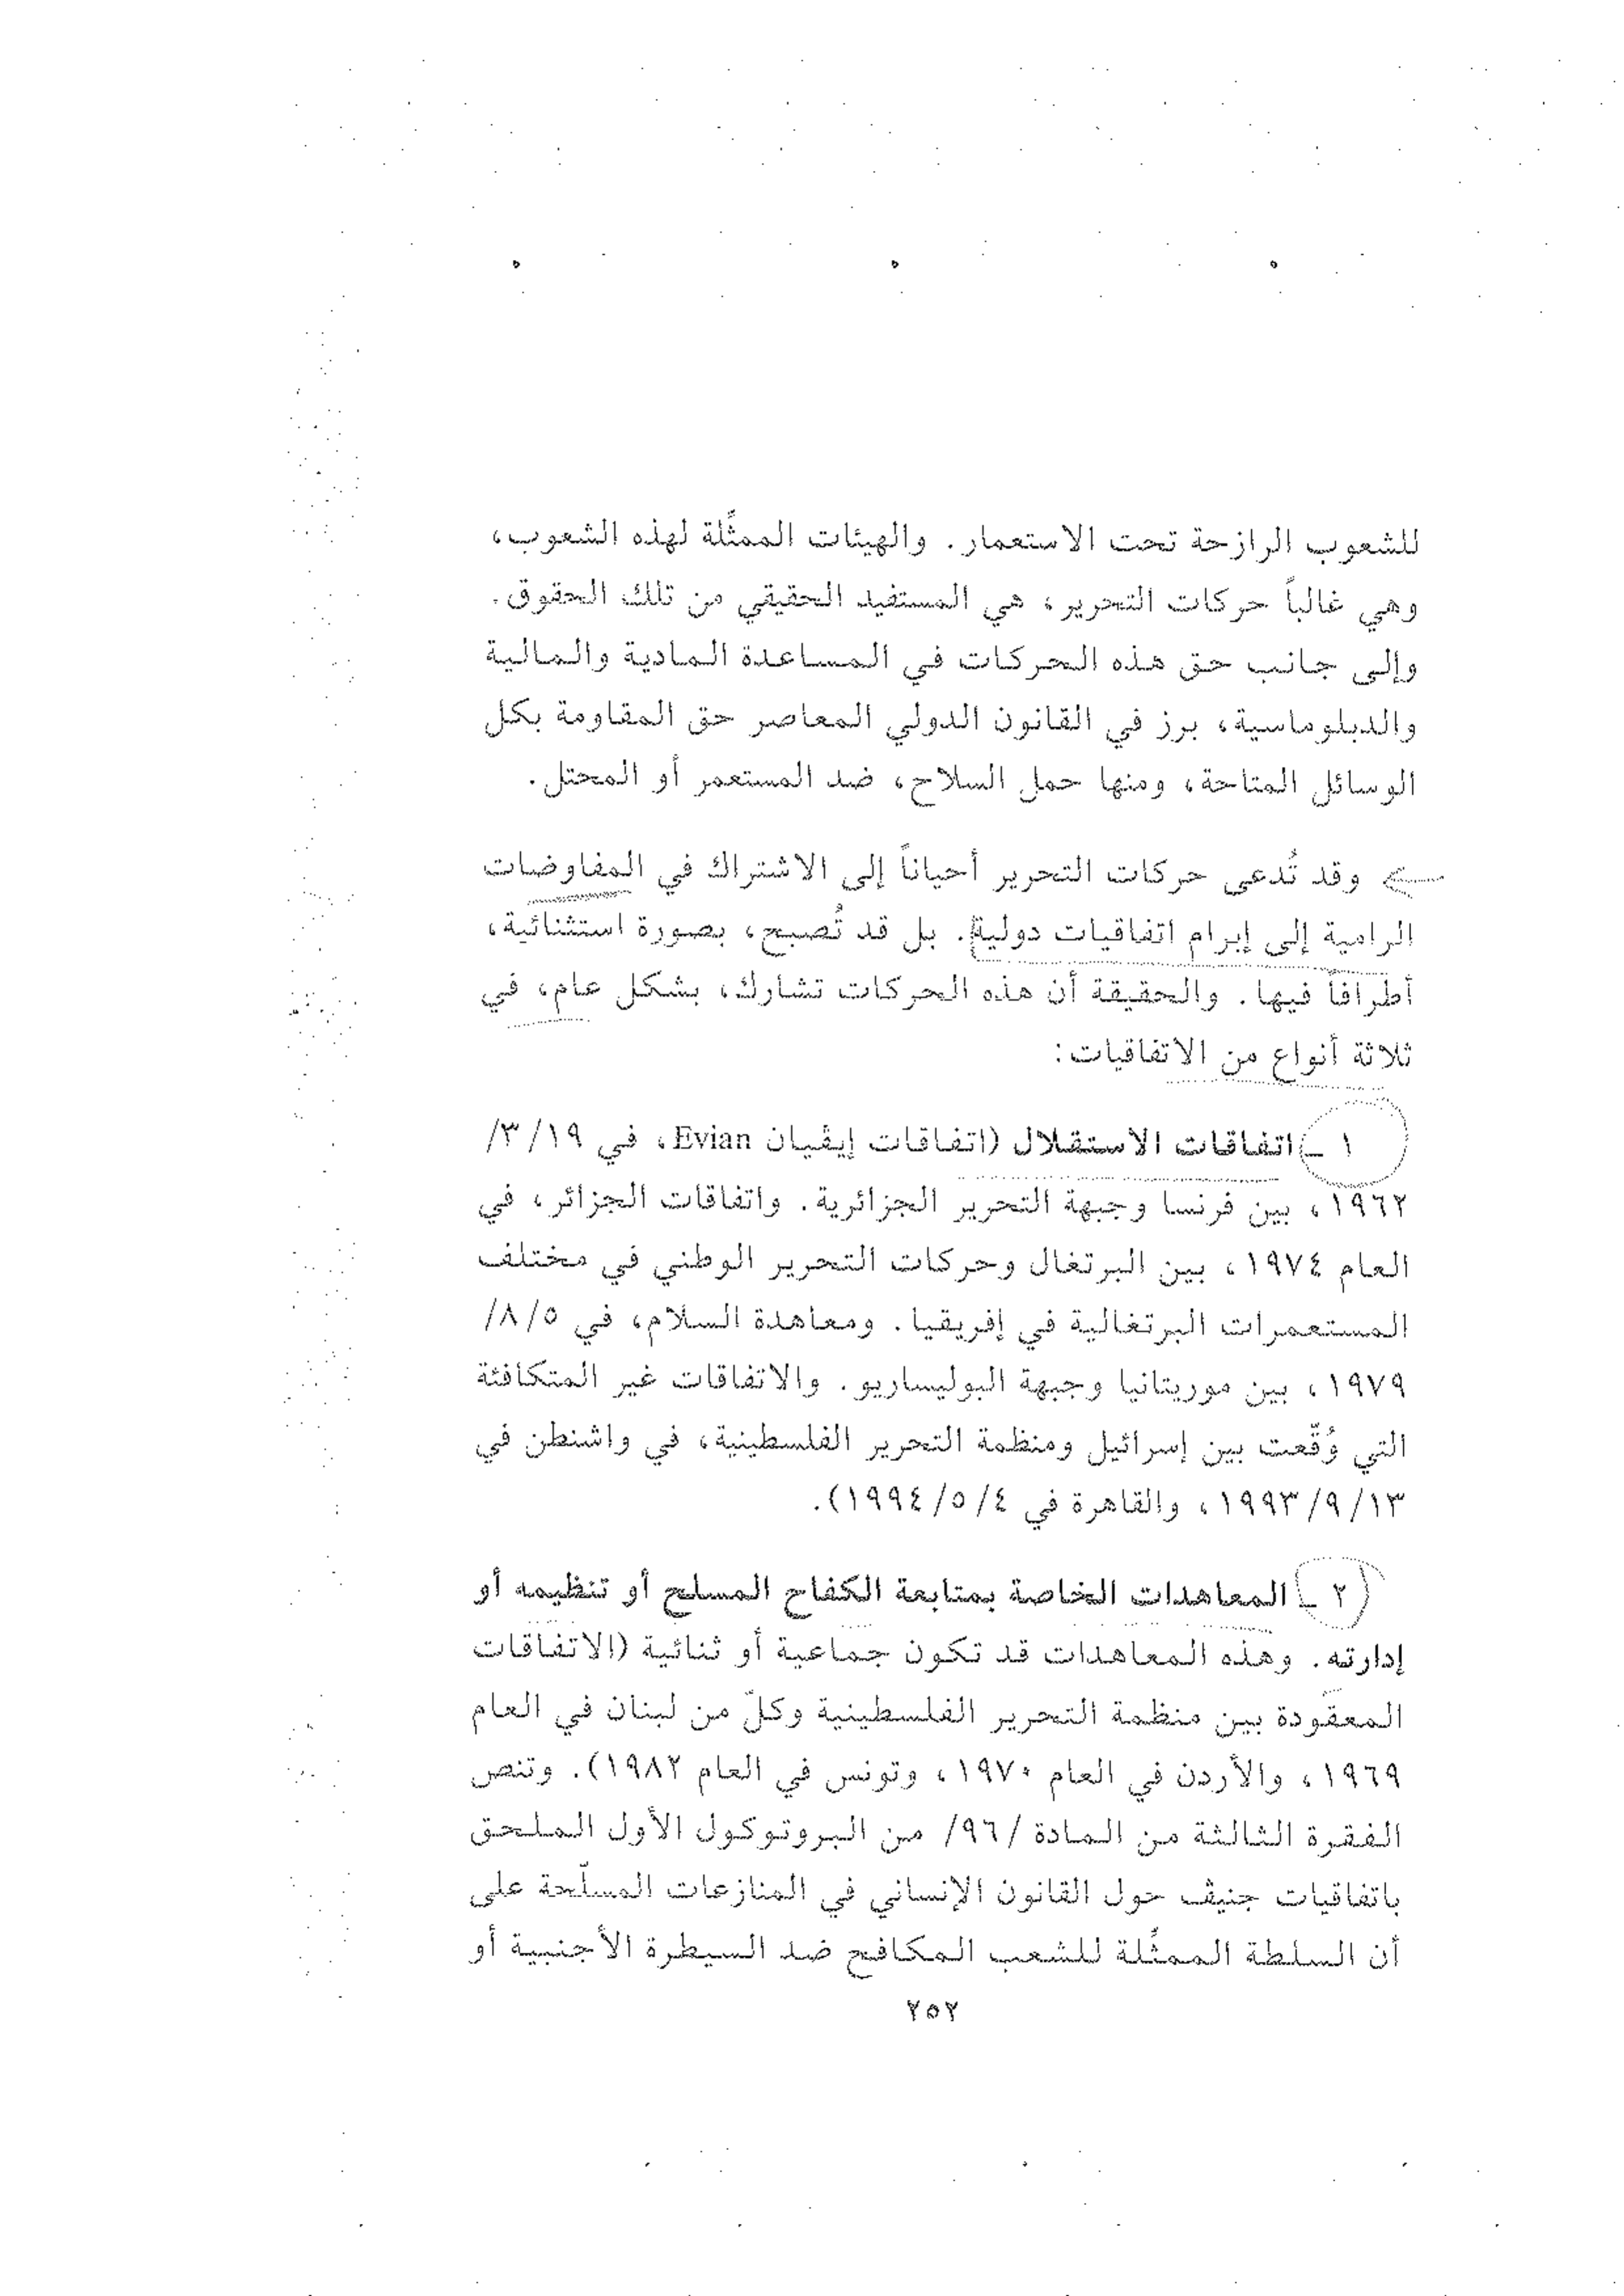 للشعوب الرازحة تحت الاستعمار. والهيئات الممثِّلة لهذه الشعوب،
وهي غالباً حركات التحرير، هي المستفيد الحقيقي من تلك الحقوق.
وإلى جانب حق هذه الحركات في المساعدة المادية والمالية
والدبلوماسية، برز في القانون الدولي المعاصر حق المقاومة بكل
الوسائل المتاحة، ومنها حمل السلاح، ضد المستعمر أو المحتل.
وقد تُدعى حركات التحرير أحياناً إلى الاشتراك في المفاوضات
الرامية إلى إبرام اتفاقيات دولية. بل قد تُصبح، بصورة استثنائية،
أطرافاً فيها. والحقيقة أن هذه الحركات تشارك، بشكل عام، في
ثلاثة أنواع من الاتفاقيات:
١ ـ اتفاقات الاستقلال (اتفاقات إيڤيان Evian، في ١٩/٣/
١٩٦٢، بين فرنسا وجبهة التحرير الجزائرية. واتفاقات الجزائر، في
العام ١٩٧٤، بين البرتغال وحركات التحرير الوطني في مختلف
المستعمرات البرتغالية في إفريقيا. ومعاهدة السلام، في ٨/٥/
١٩٧٩، بين موريتانيا وجبهة البوليساريو. والاتفاقات غير المتكافئة
التي وُقّعت بين إسرائيل ومنظمة التحرير الفلسطينية، في واشنطن في
١٣/٩/١٩٩٣، والقاهرة في ٤/٥/١٩٩٤).
٢ ـ المعاهدات الخاصة بمتابعة الكفاح المسلح أو تنظيمه أو
إدارته. وهذه المعاهدات قد تكون جماعية أو ثنائية (الاتفاقات
المعقودة بين منظمة التحرير الفلسطينية وكلّ من لبنان في العام
١٩٦٩، والأردن في العام ١٩٧٠، وتونس في العام ١٩٨٢). وتنص
الفقرة الثالثة من المادة /٩٦/ من البروتوكول الأول الملحق
باتفاقيات جنيڤ حول القانون الإنساني في المنازعات المسلّحة على
أن السلطة الممثِّلة للشعب المكافح ضد السيطرة الأجنبية أو
٢٥٢